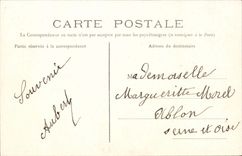 CARTE POSTALE
La Correspondance au recto n'est pas acceptée par tous les pays étrangers (se renseigner à la Poste)
Partie réservée à la correspondance
Adresse du destinataire
Souvenir
Aubert
Mademoiselle
Marguerittte Morel
Ablon
Seine et Oise